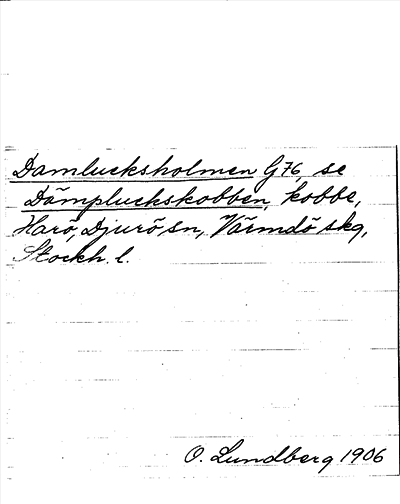 Damlucksholmen G76, se
Dämpluckskobben, kobbe,
Harö, Djurö sn, Värmdö skg,
Stockh. l.
O. Lundberg 1906